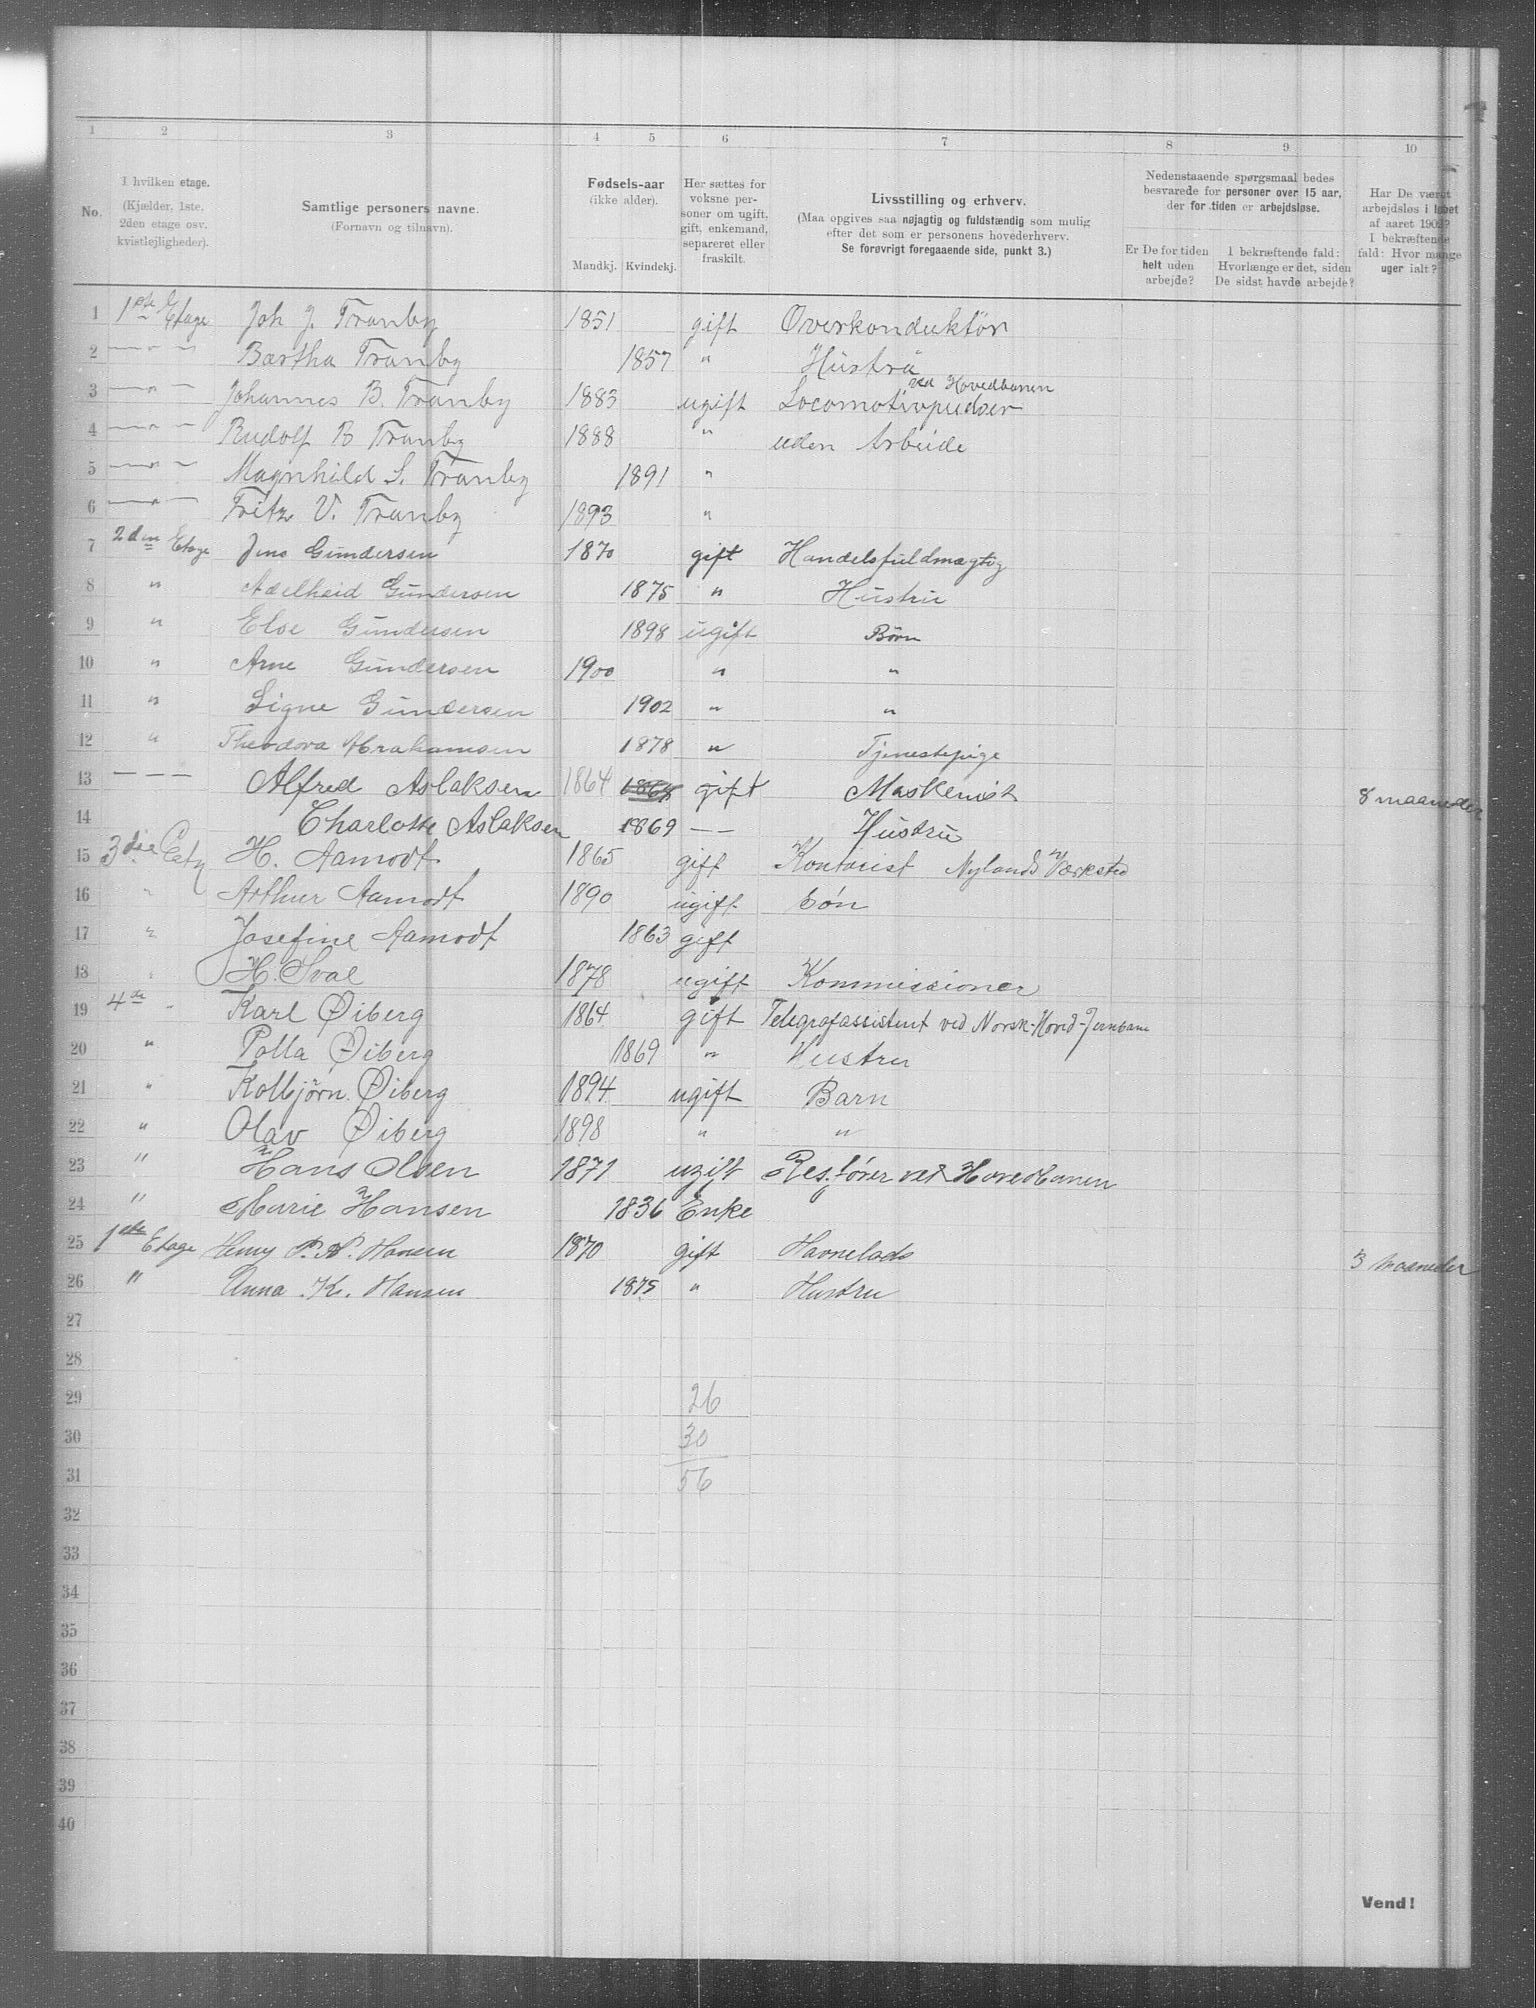 1 2 3 4 5 6 7 8 9 10
No.
I hvilken etage.
(Kjælder, 1ste.
2den etage osv.
kvistlejligheder).
Samtlige personers navne.
(Fornavn og tilnavn).
Fødsels-aar
(ikke alder).
Mandkj. Kvindekj.
Her sættes for
voksne per-
soner om ugift,
gift, enkemand,
separeret eller
fraskilt.
Livsstilling og erhverv.
(Maa opgives saa nøjagtig og fuldstændig som mulig
efter det som er personens hovederhverv.
Se forøvrigt foregaaende side, punkt 3.)
Nedenstaaende spørgsmaal bedes
besvarede for personer over 15 aar,
der for tiden er arbejdsløse.
Er De for tiden
helt uden
arbejde?
I bekræftende fald:
Hvorlænge er det, siden
De sidst havde arbejde?
Har De været
arbejdsløs i løbet
af aaret 1902?
I bekræftende
fald: Hvor mange
uger ialt?
1 1ste Etage Joh J. Tranby 1851 gift Overkonduktør
2 — " — Bertha Tranby 1857 " Hustru
3 — " — Johannes B. Tranby 1883 ugift Locomotivpudser ved Hovedbanen
4 — " — Rudolf B Tranby 1888 " uden Arbeide
5 — " — Magnhild S. Tranby 1891 "
6 — " — Fritz V. Tranby 1893 "
7 2den Etage Jens Gundersen 1870 gift Handelsfuldmægtig
8 " Adelheid Gundersen 1875 " Hustru
9 " Else Gundersen 1898 ugift Børn
10 " Arne Gundersen 1900 " "
11 " Signe Gundersen 1902 " "
12 " Theodora Abrahamsen 1878 " Tjenestepige
13 — — — Alfred Aslaksen 1864 1864 gift Maskenist 8 maaneder
14 Charlotte Aslaksen 1869 — — Hustru
15 3die Etg H. Aamodt 1865 gift Kontorist Nylands Værksted
16 " Arthur Aamodt 1890 ugift Søn
17 " Josefine Aamodt 1863 gift
18 " H. Sval 1878 ugift Kommissioner
19 4de " Karl Øiberg 1864 gift Telegrafassistent ved Norsk-Hoved-Jernbane
20 " Palla Øiberg 1869 " Hustru
21 " Kolbjørn Øiberg 1894 ugift Barn
22 " Olav Øiberg 1898 " "
23 " Hans Olsen 1871 ugift Res. fører ved Hovedbanen
24 " Marie Hansen 1836 Enke
25 1ste Etage Henry P. A. Hansen 1870 gift Havnelods 3 maaneder
26 " Anna K. Hansen 1875 " Hustru
27
28
29 26
30 30
31 56
32
33
34
35
36
37
38
39
40
Vend!